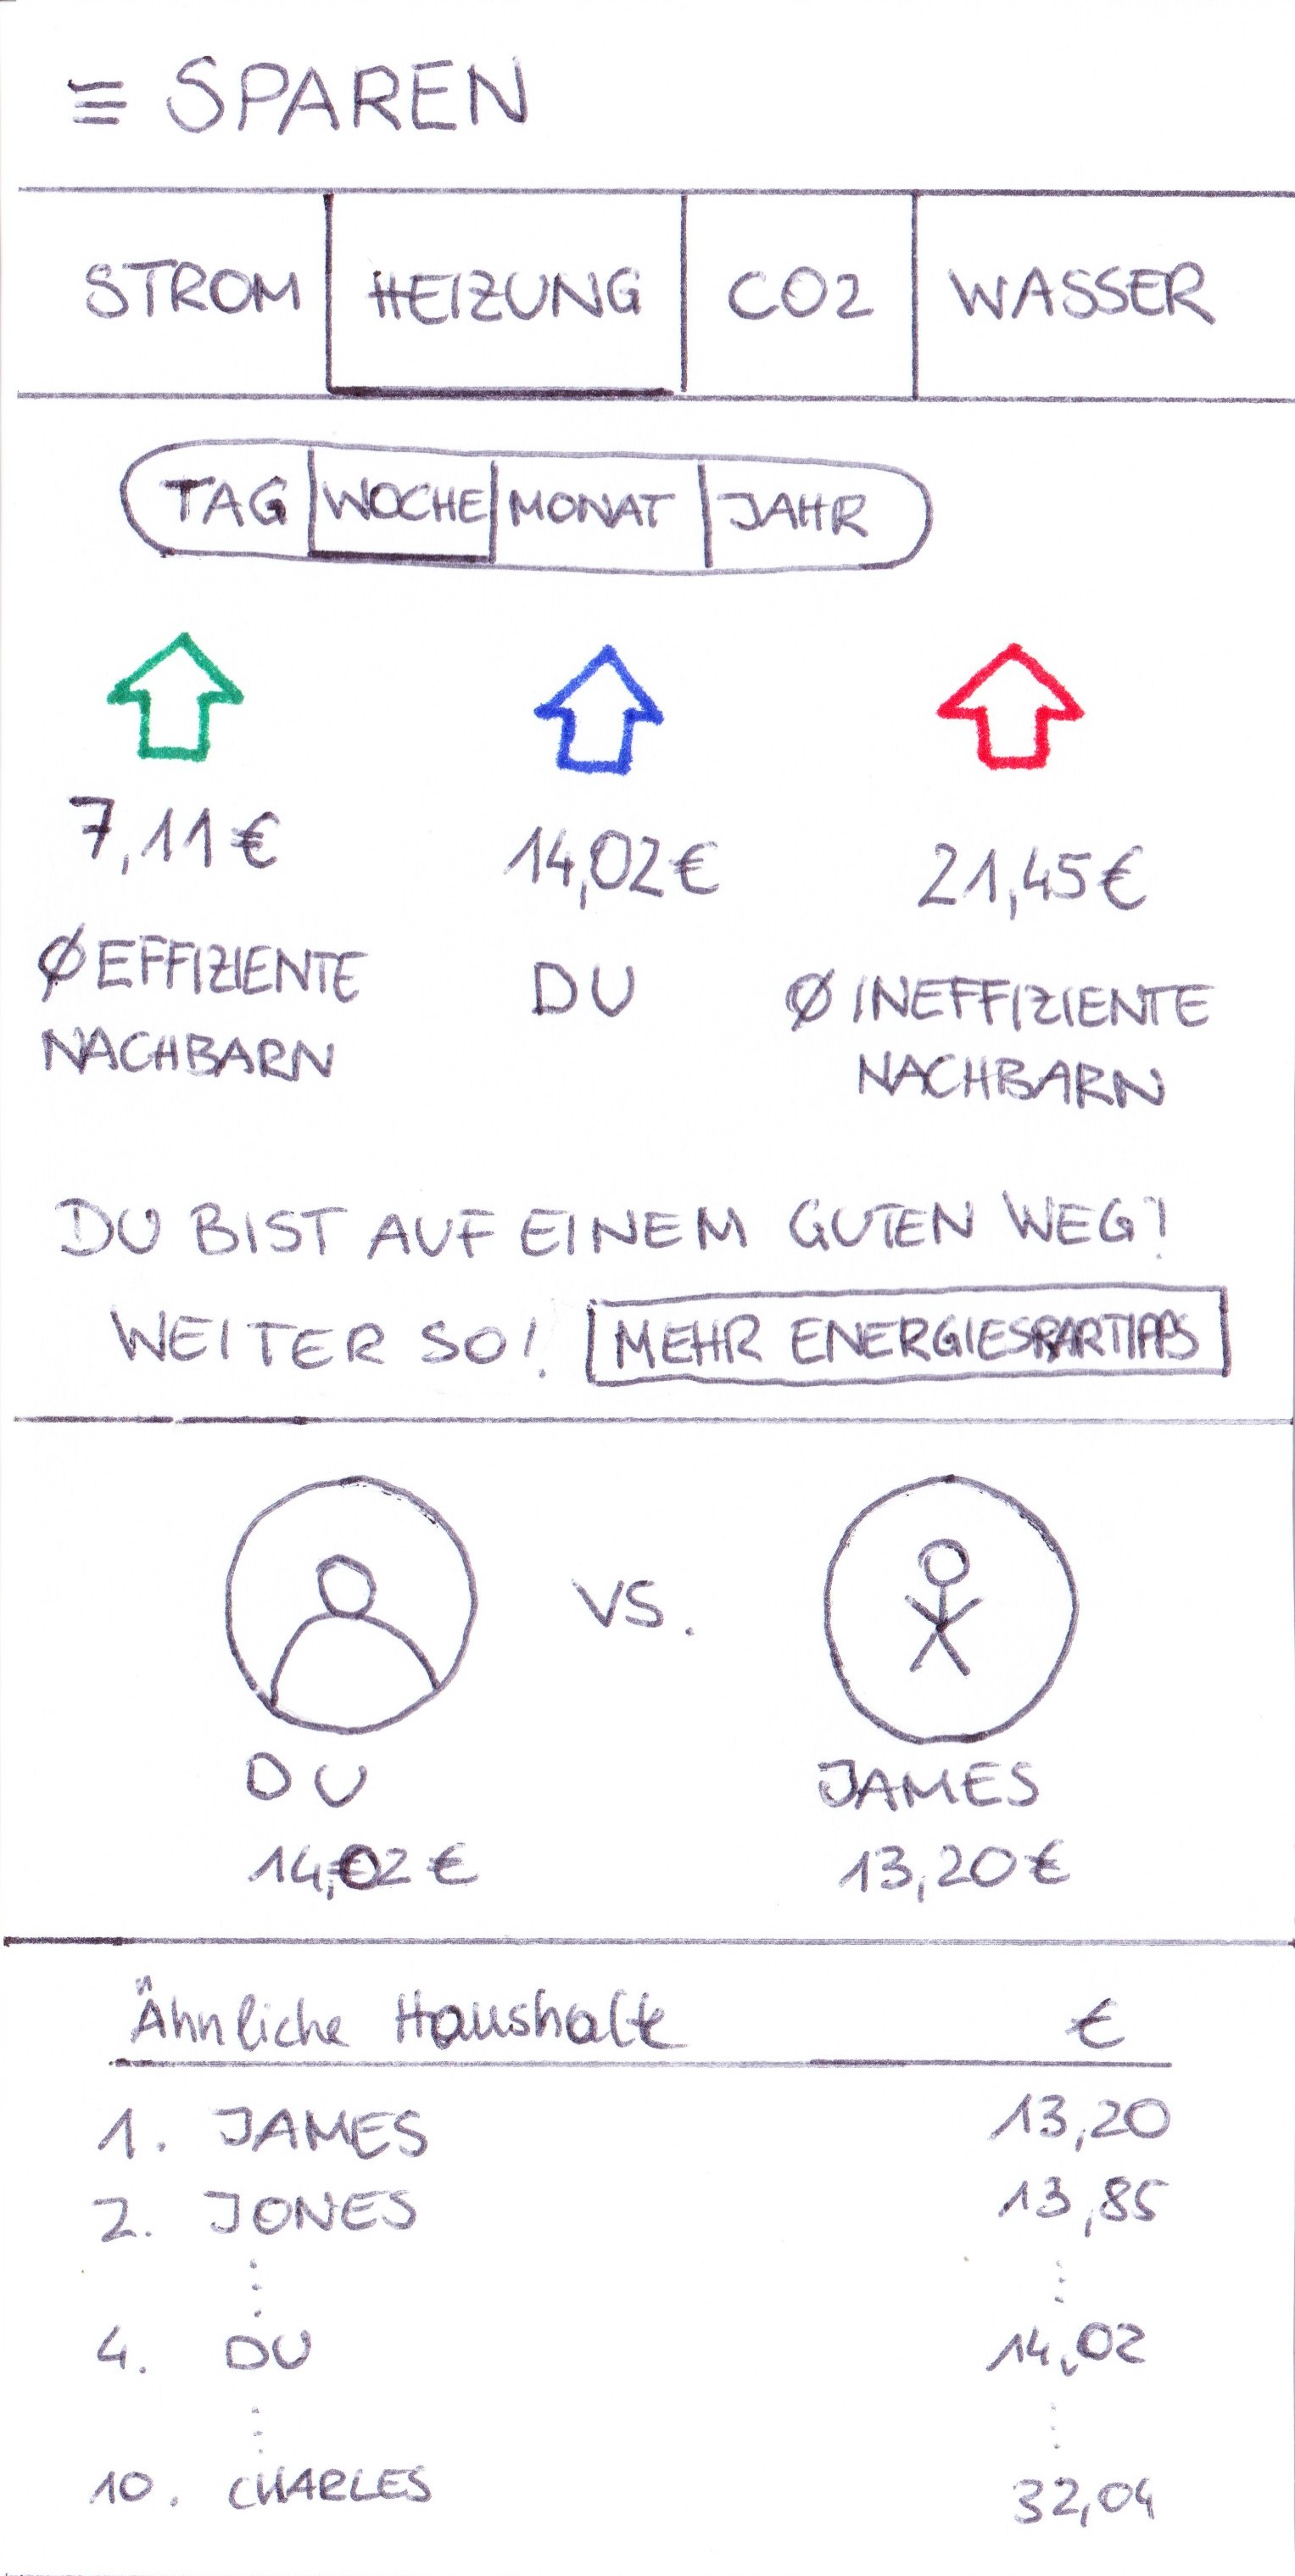 ≡ SPAREN
STROM HEIZUNG CO2 WASSER
TAG WOCHE MONAT JAHR
7,11€ 14,02€ 21,45€
Ø EFFIZIENTE NACHBARN
DU
Ø INEFFIZIENTE NACHBARN
DU BIST AUF EINEM GUTEN WEG!
WEITER SO! MEHR ENERGIESPARTIPPS
VS.
DU JAMES
14,02€ 13,20€
Ähnliche Haushalte €
1. JAMES 13,20
2. JONES 13,85
4. DU 14,02
10. CHARLES 32,04